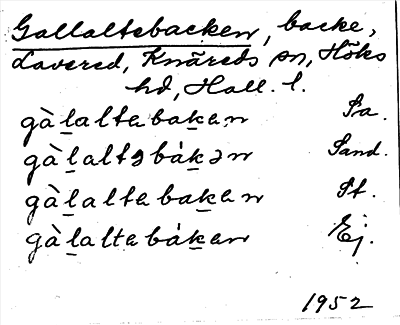 Gallaltebacken, backe,
Lavered, Knäreds sn, Höks
hd, Hall. l.
gàl̲altebak̲en
gàl̲altəbák̲ən Sand.
gàl̲altebak̲en St.
gàl̲altebák̲en Ej.
1952